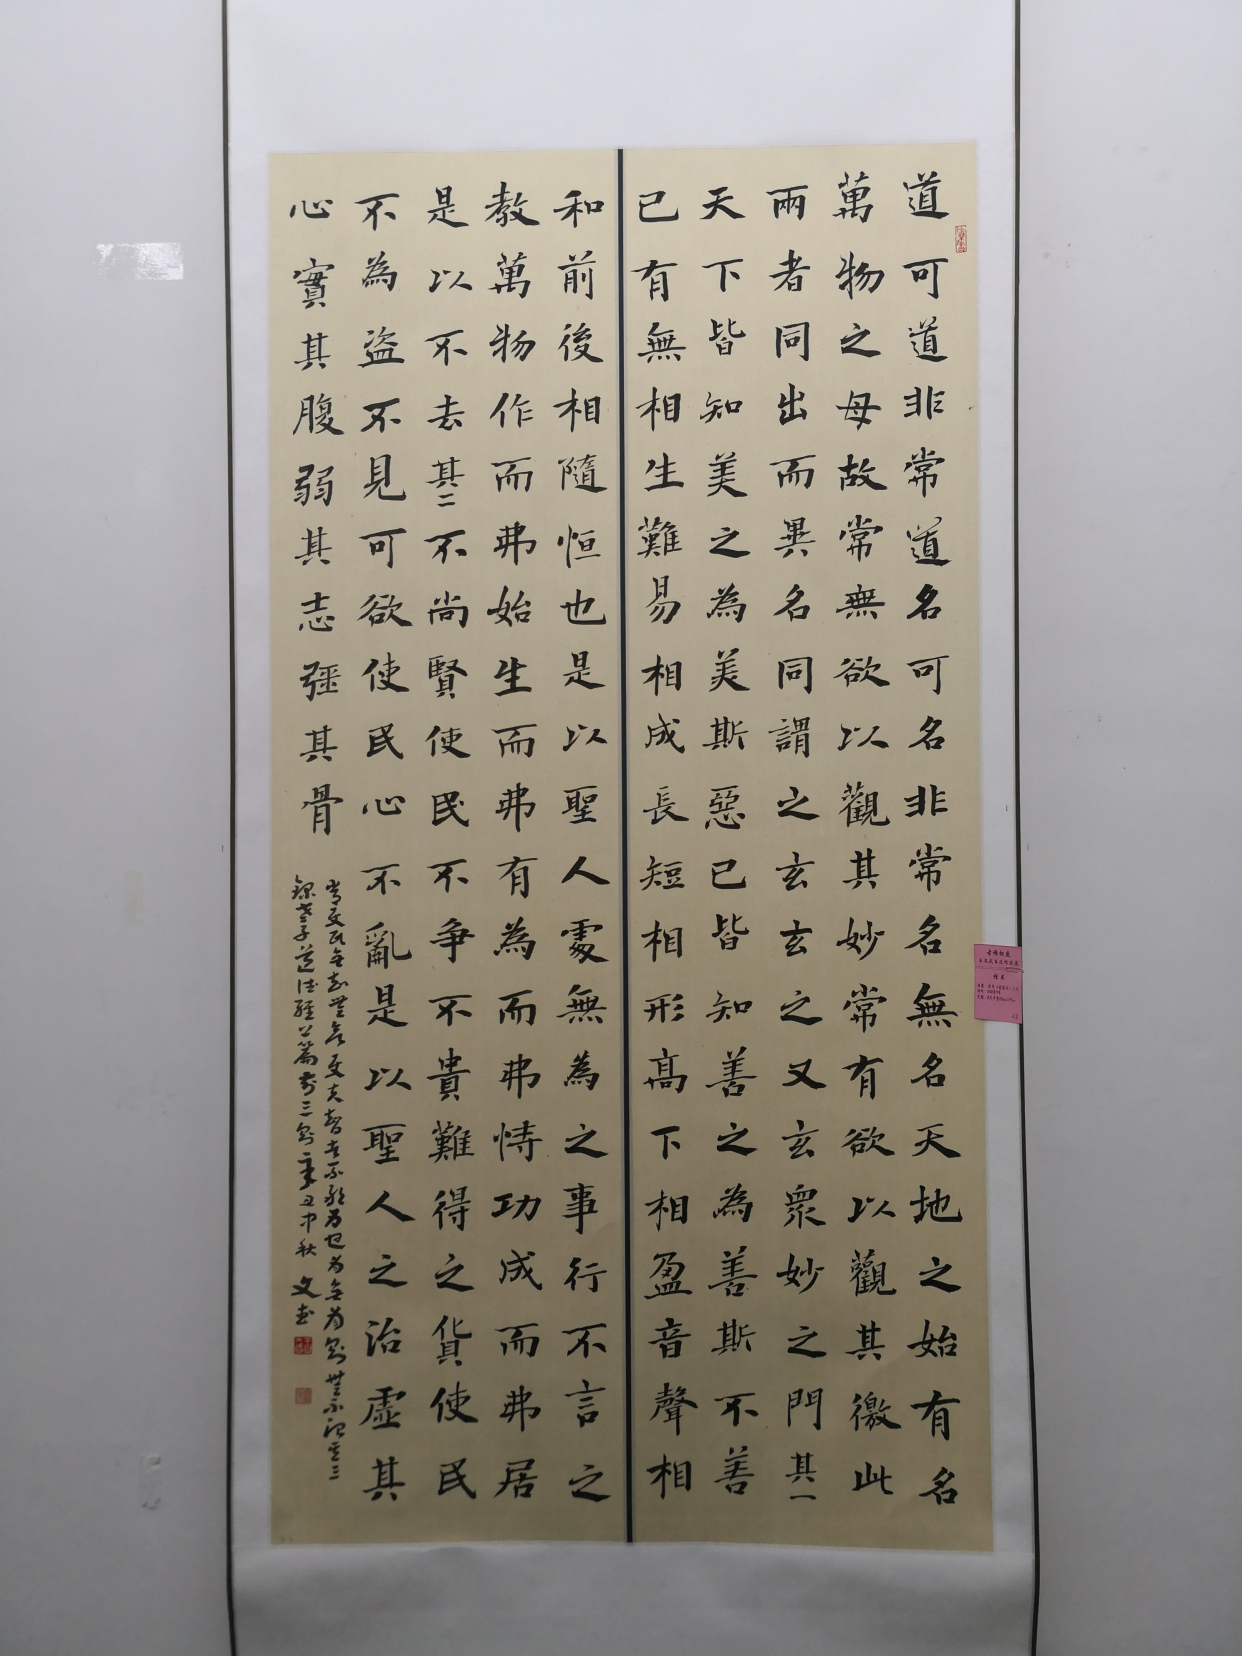 道可道非常道名可名非常名無名天地之始有名
萬物之母故常無欲以觀其妙常有欲以觀其徼此
兩者同出而異名同謂之玄玄之又玄衆妙之門其一
天下皆知美之為美斯惡已皆知善之為善斯不善
已有無相生難易相成長短相形高下相盈音聲相
和前後相隨恒也是以聖人處無為之事行不言之
教萬物作而弗始生而弗有為而弗恃功成而弗居
是以不去其二不尚賢使民不争不貴難得之貨使民
不為盜不見可欲使民心不亂是以聖人之治虛其
心實其腹弱其志彊其骨
常使民無知無欲使夫智者不敢為也為無為則無不治其三
錄老子道德經上篇前三則辛丑中秋文